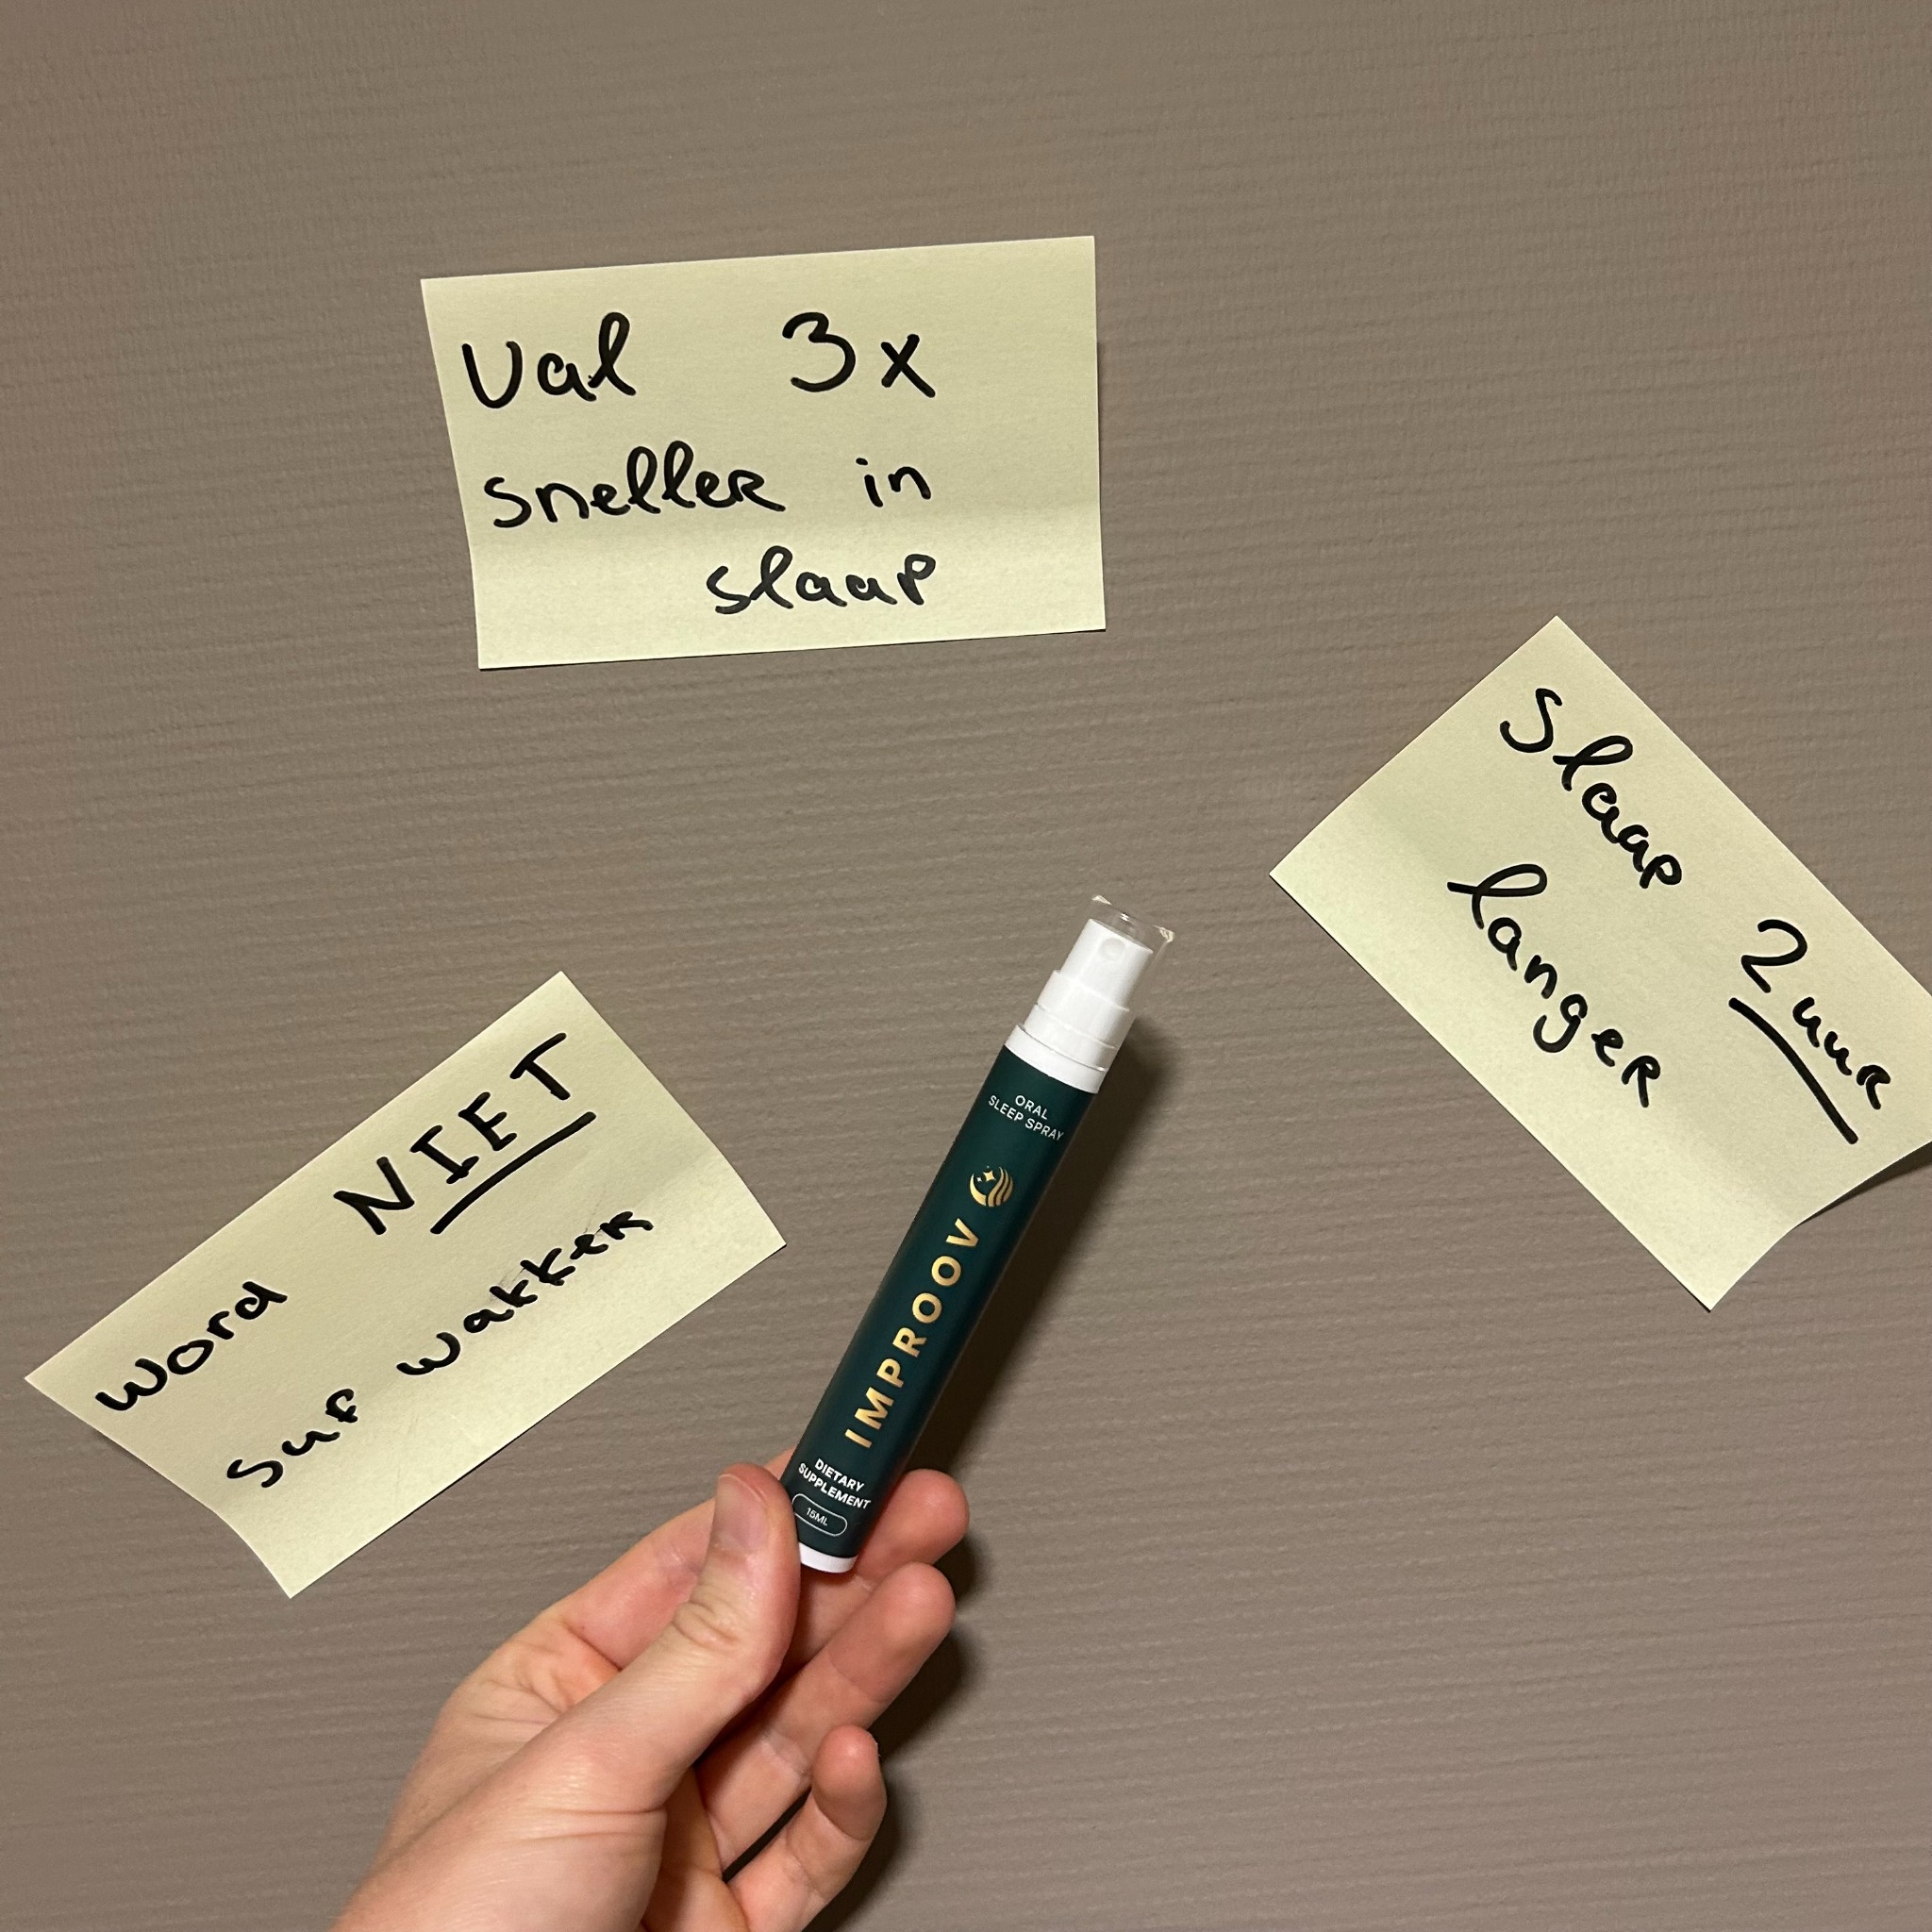 Val 3x
sneller in
slaap
Slaap 2 uur
langer
Word NIET
suf wakker
ORAL
SLEEP SPRAY
IMPROOV
DIETARY
SUPPLEMENT
15ML